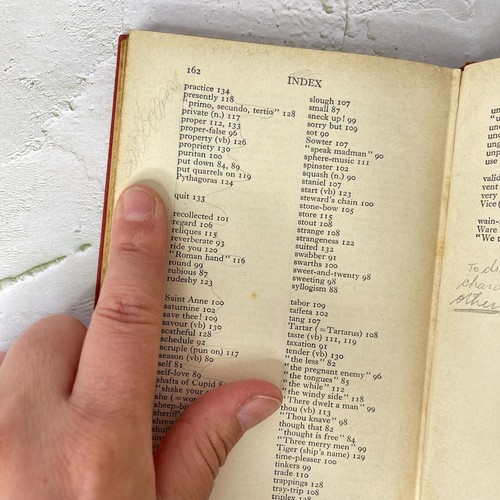 162
INDEX
practice 134
presently 118
"primo, secundo, tertio" 128
private (n.) 117
proper 112, 133
proper-false 96
property (vb) 126
propriety 130
puritan 100
put down 84, 89
put quarrels on 119
Pythagoras 124
quit 133
recollected 101
regard 106
reliques 115
reverberate 93
ride you 120
"Roman hand" 116
round 99
rubious 87
rudesby 123
Saint Anne 100
saturnine 102
save thee! 109
savour (vb) 130
scatheful 128
schedule 92
scruple (pun on) 117
season (vb) 80
self 81
self-love 89
shafts of Cupid
"shake your
she (=
sheep-bi
sheriff'
slough 107
small 87
sneck up! 99
sorry but 109
sot 90
Sowter 107
"speak madman" 90
sphere-music 111
spinster 102
squash (n.) 90
staniel 107
start (vb) 123
steward's chain 100
stone-bow 105
store 115
stout 108
strange 108
strangeness 122
suited 132
swabber 91
swarths 100
sweet-and-twenty 98
sweeting 98
syllogism 88
tabor 109
taffeta 102
tang 107
Tartar (=Tartarus) 108
taste (vb) 111, 119
taxation 91
tender (vb) 130
"the less" 82
"the pregnant enemy" 96
"the tongues" 85
"the while" 112
"the windy side" 118
"There dwelt a man" 99
thou (vb) 113
"Thou knave" 98
though that 82
"thought is free" 84
"Three merry men" 99
Tiger (ship's name) 129
time-pleaser 100
tinkers 99
trade 110
trappings 128
tray-trip 108
triplex 128
un
"u
un
un
un
use
valid
vent
vic
Vice (
wain-
Ware
"We t
To di
other